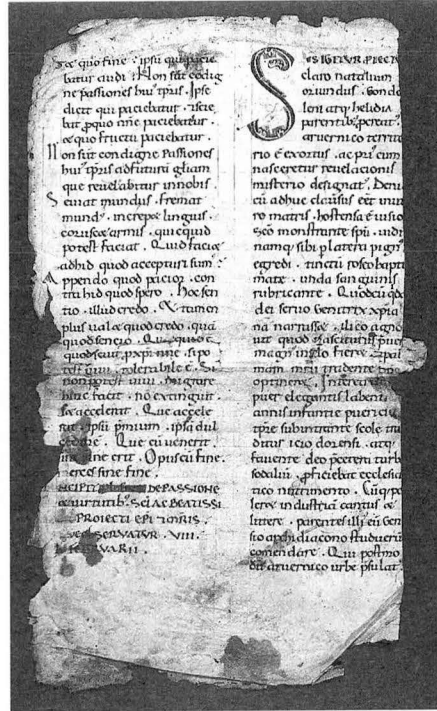 quo fine. ipsi qui pacie
batur audi. Non st condig
ne passiones hui tpris. Ipse
dicit qui paciebatur.
bat p quo paciebatur.
& quo fructu paciebatur.
Non sunt condigne passiones
hui tpris ad futura gliam
que revelabitur innobis.
Seviat mundus. fremat
mund. increpet linguis.
coruscet armis. quicquid
potest faciat. Quid faciet
adhid quod accepturi sum?
Appendo quod pacior. con
tra hid quod spero. Hoc sen
tio. illud credo. & tamen
plus val& quod credo. qua
quod sencio.
quod sevit. p xpi nme. si po
test vivi. tolerabile e. Si
non potest vivi. migrare
hinc facit. no extinguit.
accelerat. Que accele
rat. ipsu pmium. ipsa dul
cedine. Que cu venerit
sine fine erit. Opus cu fine.
merces sine fine.
INCIPIT DE PASSIONE
& virtutib SCI AC BEATISSI
PROIECTI EPI
SERVATUR. VIII.
FEBRUARII.
S IGITUR PREIECT
claro natalium
oriundus. Gondo
leni atq helidia
parentib; pereat
arvernico territo
rio e exortus. ac priu cum
nasceretur revelacionis
misterio designat. Deni
cu adhuc clausus e&t int
ro matris. hostensa e visio
sco monstrante spu. vidi
namq sibi p latera pign
egredi. tinctu roseo bapti
mate. unda sanguinis
rubricante.
dei servo genitrix xpia
na narrass&. ilico agno
vit quod nascituris puer
magn in glo fier&.
mam meru tridente
optiner&. Interea
puer elegantis labent
annis infantie puericie
tpre subintrante scole tra
ditur icio dorensi. atq
favente deo pceteri turb
sodaliu. pficiebat ecclesia
tico nutrimento. Cuq pe
ser& industria cantus &
littere. parentes illi eu Gen
sio archidiacono studueru
comendare. Qui postmo
du arvernico urbe psulat